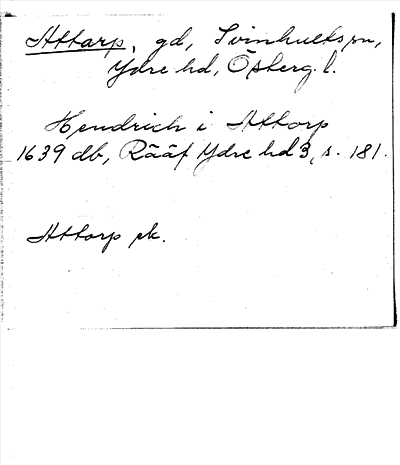 Attarp, gd, Svinhults sn,
Ydre hd, Österg. l.
Hendrich i Attorp
1639 db, Rääf Ydre hd 3, s. 181.
Attorp sk.